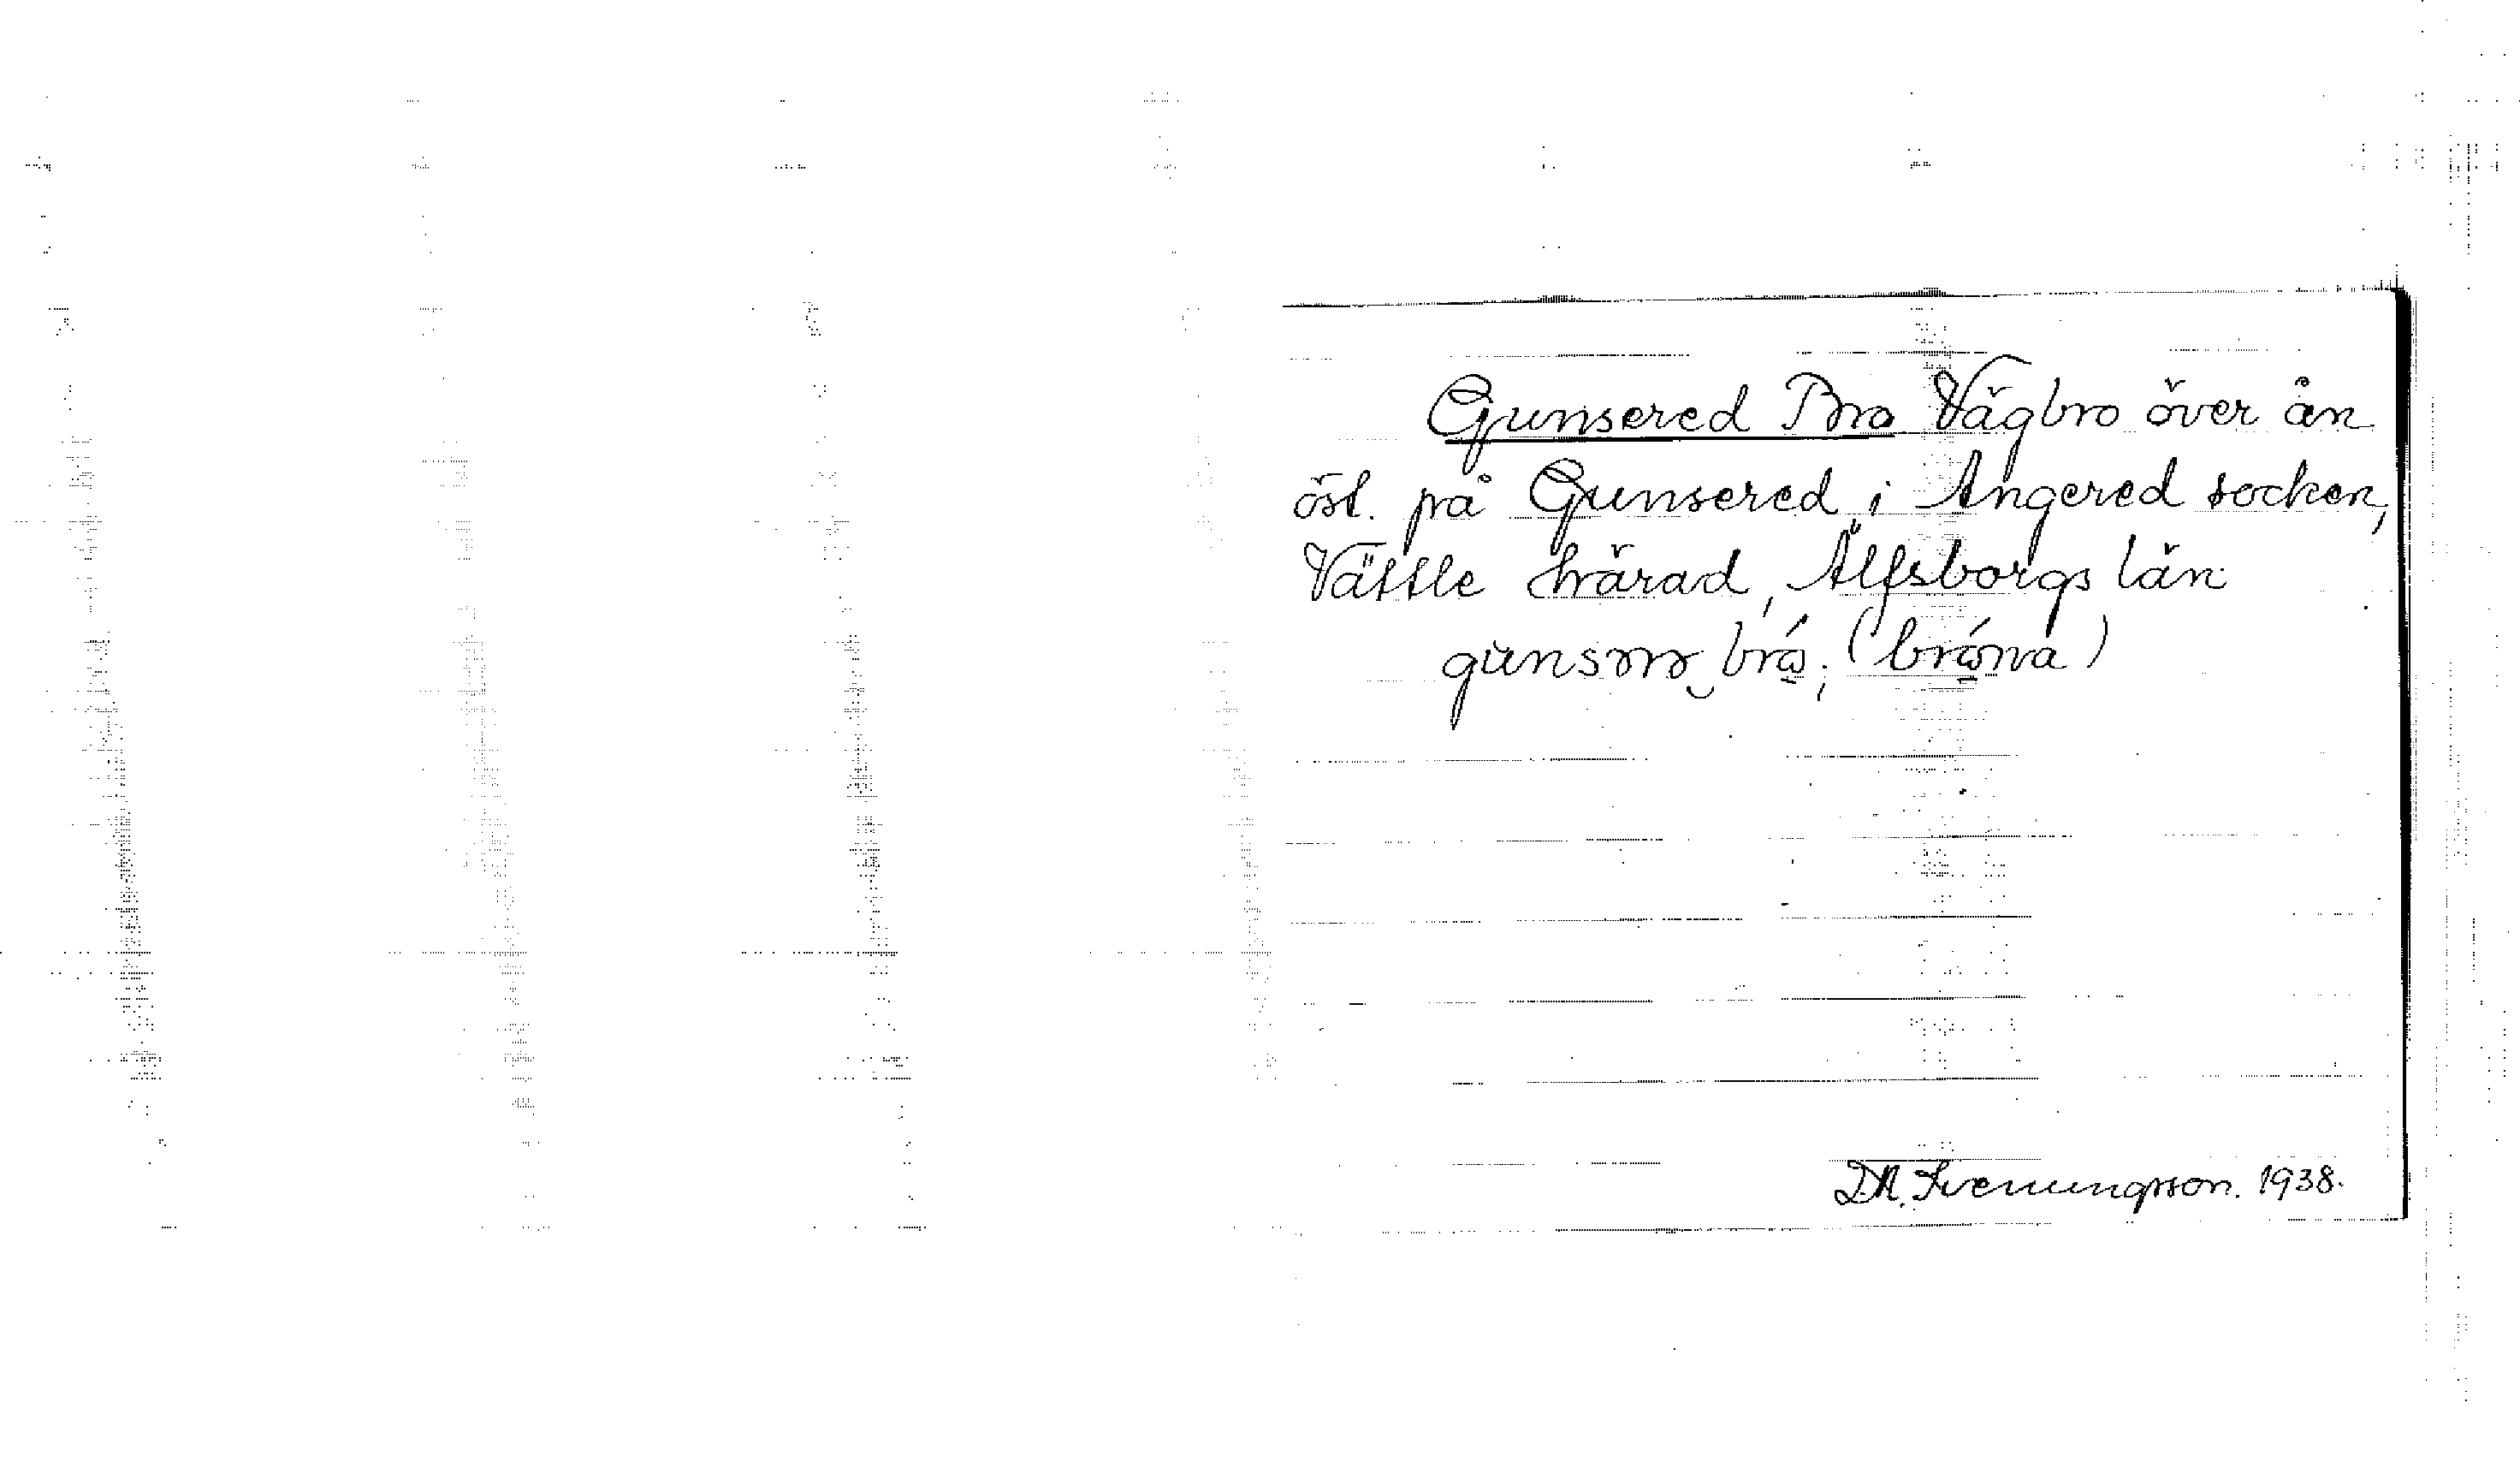 Gunsered Bro Vägbro över ån
öst. på Gunsered i Angered socken,
Vättle härad, Älfsborgs län
D.A. Svenungsson. 1938.